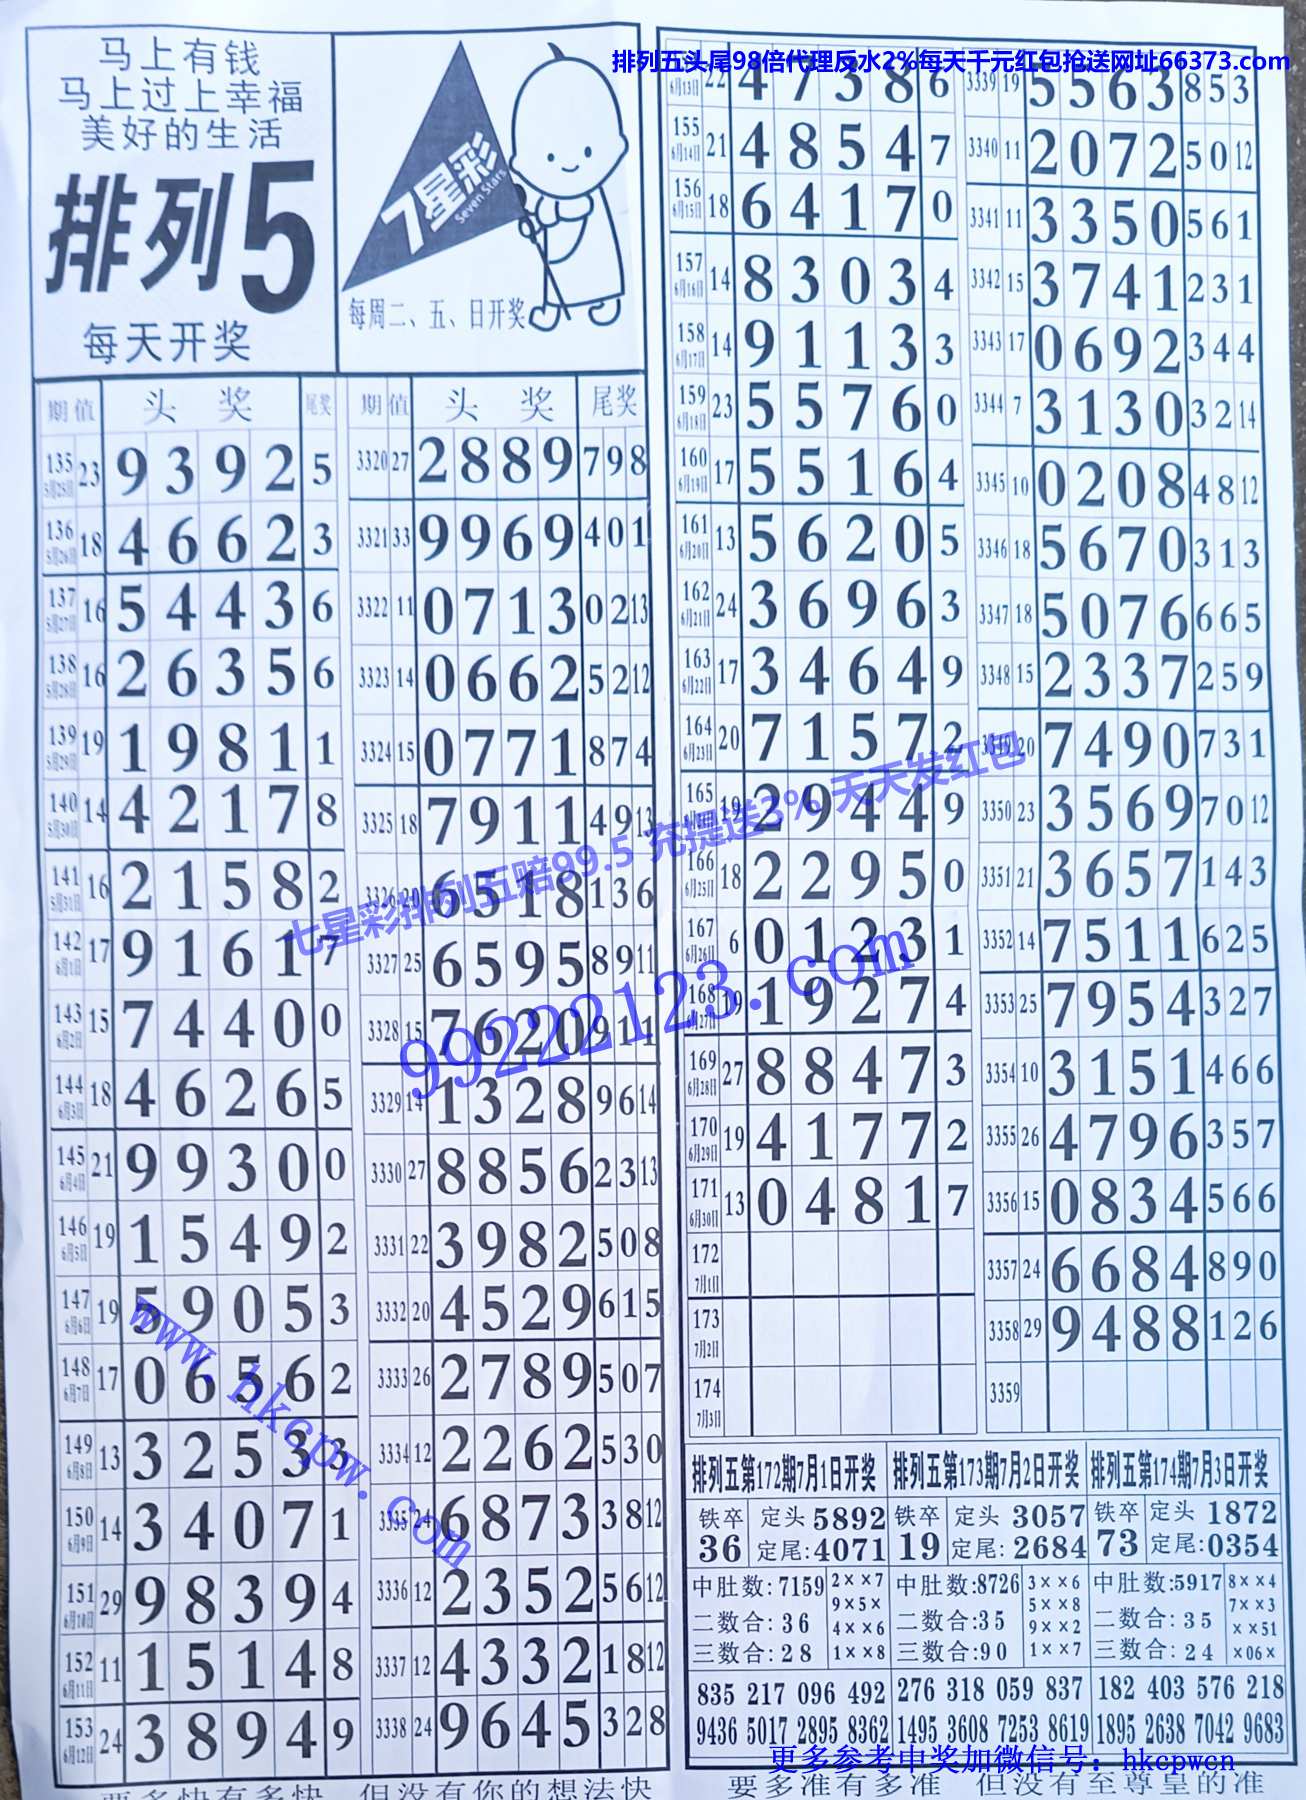 马上有钱
马上过上幸福
美好的生活
排列5
每天开奖
7星彩
Seven Stars
每周二、五、日开奖
期 值 头 奖 尾奖
135 5月25日 23 9 3 9 2 5
136 5月26日 18 4 6 6 2 3
137 5月27日 16 5 4 4 3 6
138 5月28日 16 2 6 3 5 6
139 5月29日 19 1 9 8 1 1
140 5月30日 14 4 2 1 7 8
141 5月31日 16 2 1 5 8 2
142 6月1日 17 9 1 6 1 7
143 6月2日 15 7 4 4 0 0
144 6月3日 18 4 6 2 6 5
145 6月4日 21 9 9 3 0 0
146 6月5日 19 1 5 4 9 2
147 6月6日 19 5 9 0 5 3
148 6月7日 17 0 6 5 6 2
149 6月8日 13 3 2 5 3 3
150 6月9日 14 3 4 0 7 1
151 6月10日 29 9 8 3 9 4
152 6月11日 11 1 5 1 4 8
153 6月12日 24 3 8 9 4 9
期 值 头 奖 尾奖
3320 27 2 8 8 9 7 9 8
3321 33 9 9 6 9 4 0 1
3322 11 0 7 1 3 0 2 13
3323 14 0 6 6 2 5 2 12
3324 15 0 7 7 1 8 7 4
3325 18 7 9 1 1 4 9 13
3326 20 6 5 1 8 1 3 6
3327 25 6 5 9 5 8 9 11
3328 15 7 6 2 0 9 1 1
3329 14 1 3 2 8 9 6 14
3330 27 8 8 5 6 2 3 13
3331 22 3 9 8 2 5 0 8
3332 20 4 5 2 9 6 1 5
3333 26 2 7 8 9 5 0 7
3334 12 2 2 6 2 5 3 0
3335 24 6 8 7 3 3 8 12
3336 12 2 3 5 2 5 6 12
3337 12 4 3 3 2 1 8 12
3338 24 9 6 4 5 3 2 8
排列五头尾98倍代理反水2%每天千元红包抢送网址66373.com
6月13日 22 4 7 3 8 6
155 6月14日 21 4 8 5 4 7
156 6月15日 18 6 4 1 7 0
157 6月16日 14 8 3 0 3 4
158 6月17日 14 9 1 1 3 3
159 6月18日 23 5 5 7 6 0
160 6月19日 17 5 5 1 6 4
161 6月20日 13 5 6 2 0 5
162 6月21日 24 3 6 9 6 3
163 6月22日 17 3 4 6 4 9
164 6月23日 20 7 1 5 7 2
165 19 2 9 4 4 9
166 6月25日 18 2 2 9 5 0
167 6月26日 6 0 1 2 3 1
168 6月27日 19 1 9 2 7 4
169 6月28日 27 8 8 4 7 3
170 6月29日 19 4 1 7 7 2
171 6月30日 13 0 4 8 1 7
172 7月1日
173 7月2日
174 7月3日
3339 19 5 5 6 3 8 5 3
3340 11 2 0 7 2 5 0 12
3341 11 3 3 5 0 5 6 1
3342 15 3 7 4 1 2 3 1
3343 17 0 6 9 2 3 4 4
3344 7 3 1 3 0 3 2 14
3345 10 0 2 0 8 4 8 12
3346 18 5 6 7 0 3 1 3
3347 18 5 0 7 6 6 6 5
3348 15 2 3 3 7 2 5 9
3349 20 7 4 9 0 7 3 1
3350 23 3 5 6 9 7 0 12
3351 21 3 6 5 7 1 4 3
3352 14 7 5 1 1 6 2 5
3353 25 7 9 5 4 3 2 7
3354 10 3 1 5 1 4 6 6
3355 26 4 7 9 6 3 5 7
3356 15 0 8 3 4 5 6 6
3357 24 6 6 8 4 8 9 0
3358 29 9 4 8 8 1 2 6
3359
七星彩排列五赔99.5 充提送3% 天天发红包
99222123.com
www.hkcpw.com
排列五第172期7月1日开奖
铁卒 36 定头 5892
定尾:4071
中肚数:7159
二数合:36
三数合:28
2××7
9×5×
4××6
1××8
835 217 096 492
9436 5017 2895 8362
排列五第173期7月2日开奖
铁卒 19 定头 3057
定尾:2684
中肚数:8726
二数合:35
三数合:90
3××6
5××8
9××2
1××7
276 318 059 837
1495 3608 7253 8619
排列五第174期7月3日开奖
铁卒 73 定头 1872
定尾:0354
中肚数:5917
二数合:35
三数合:24
8××4
7××3
××51
×06×
182 403 576 218
1895 2638 7042 9683
更多参考中奖加微信号：hkcpwcn
要多快有多快 但没有你的想法快
要多准有多准 但没有至尊皇的准